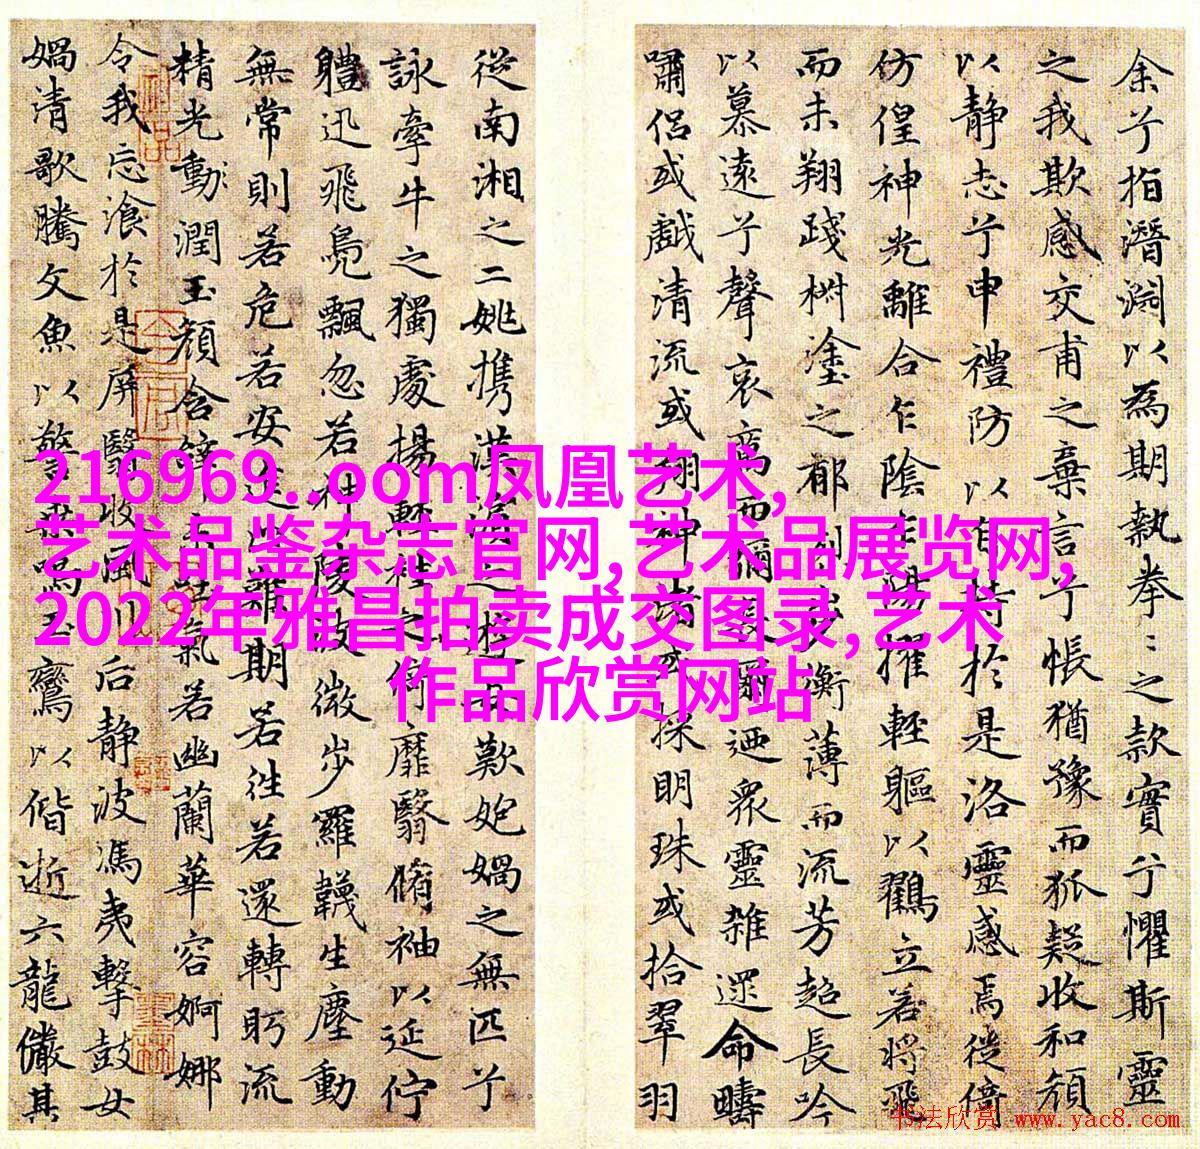 余兮指潛淵以為期執拳〻之款實兮懼斯靈
之我欺感交甫之棄言兮悵猶豫而狐疑收和顏
以靜志兮申禮防以自持於是洛靈感焉徙倚
仿偟神光離合乍陰乍陽擢輕軀以鶴立若將飛
而未翔踐椒塗之郁烈步衡薄而流芳超長吟
以慕遠兮聲哀厲而彌長爾迺衆靈雜遝命疇
嘯侶或戲清流或翔神渚或採明珠或拾翠羽
從南湘之二姚攜漢濱之游女歎匏媧之無匹兮
詠牽牛之獨處揚輕袿之倚靡翳脩袖以延佇
體迅飛鳧飄忽若神陵波微步羅襪生塵動
無常則若危若安進止難期若往若還轉眄流
精光動潤玉顏含辭未吐氣若幽蘭華容婀娜
令我忘飡於是屏翳收風川后静波馮夷擊鼓女
媧清歌騰文魚以警乘鳴玉鸞以偕逝六龍儼其
216969..oom凤凰艺术,
艺术品鉴杂志官网,艺术品展览网,
2022年雅昌拍卖成交图录,艺术
作品欣赏网站
书法欣赏 www.yac8.com